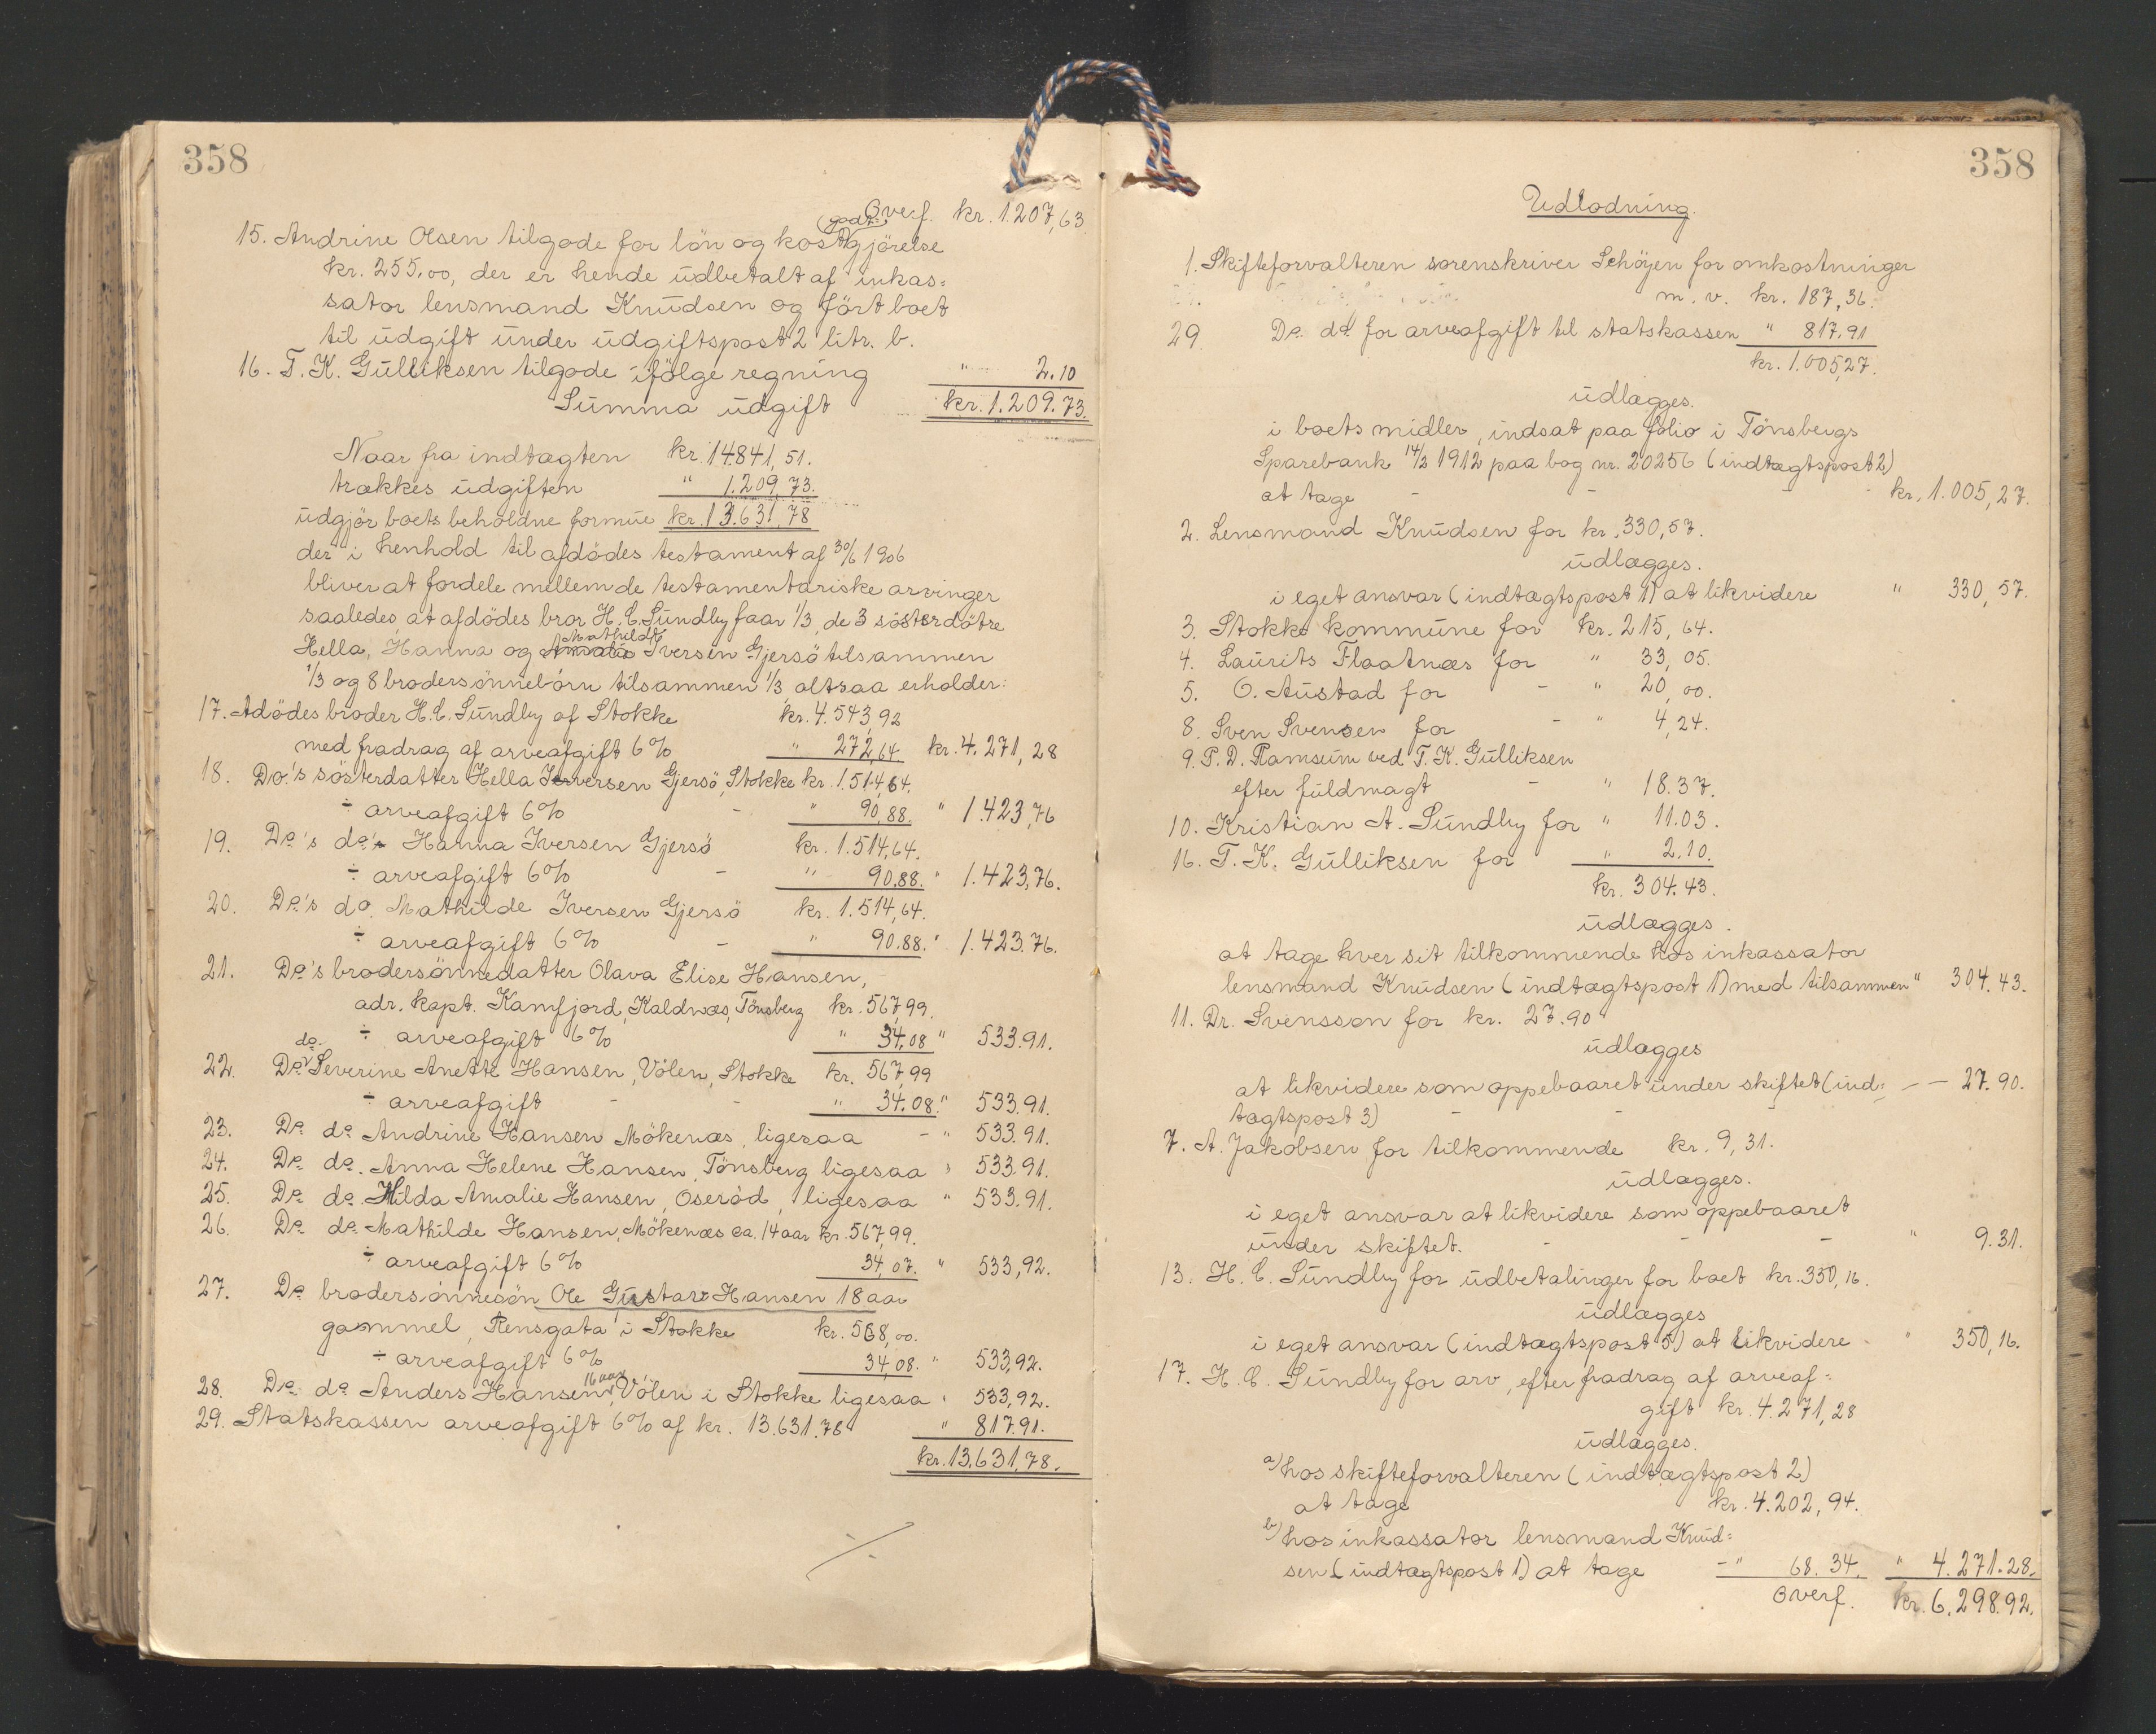 358
Overf. kr. 1.207,63
15. Andrine Olsen tilgode for lön og kostgodtgjörelse
kr. 255,00, der er hende udbetalt af inkas=
sator lensmand Knudsen og fört boet
til udgift under udgiftspost 2 litr. b.
16. T. K. Gulliksen tilgode ifölge regning " 2.10
Summa udgift kr. 1.209.73.
Naar fra indtægten kr. 14841,51.
trækkes udgiften " 1.209,73.
udgjör boets beholdne formue kr. 13.631,78
der i henhold til afdödes testament af 30/6 1906
bliver at fordele mellem de testamentariske arvinger
saaledes, at afdödes bror H. C. Sundby faar 1/3, de 3 sösterdötre
Hella, Hanna og Mathilde Iversen Gjersö tilsammen
1/3 og 8 brodersönnebörn tilsammen 1/3 altsaa erholder:
17. Adödes broder H. C. Sundby af Stokke kr. 4.543,92
med fradrag af arveafgift 6% " 272,64 kr. 4.271,28
18. Do.'s sösterdatter Hella Iversen Gjersö, Stokke kr. 1.514,64.
÷ arveafgift 6% - " 90,88. " 1.423,76
19. Do.'s do. Hanna Iversen Gjersö kr. 1.514,64.
÷ arveafgift 6% - " 90.88. " 1.423,76.
20. Do.'s do. Mathilde Iversen Gjersö kr. 1.514,64.
÷ arveafgift 6% - " 90.88. " 1.423.76.
21. Do.'s brodersönnedatter Olava Elise Hansen,
adr. kapt. Kamfjord, Kaldnæs, Tönsberg kr. 567,99.
÷ arveafgift 6% " 34.08 " 533.91.
22. Do. do. Severine Anette Hansen, Völen, Stokke kr. 567,99
÷ arveafgift - - " 34.08. " 533.91.
23. Do. do. Andrine Hansen Mökenæs, ligesaa - " 533.91.
24. Do. do. Anna Helene Hansen, Tönsberg ligesaa " 533.91.
25. Do. do. Hilda Amalie Hansen, Oseröd, ligesaa " 533.91.
26. Do. do. Mathilde Hansen, Mökenæs ca. 14 aar kr. 567,99.
÷ arveafgift 6% 34,07. " 533,92.
27. Do. brodersönnesön Ole Gustav Hansen 18 aar
gammel, Rensgata i Stokke kr. 568,00.
÷ arveafgift 6% 34,08. " 533,92.
28. Do. do. Anders Hansen, 16 aar, Völen i Stokke ligesaa " 533,92.
29. Statskassen arveafgift 6% af kr. 13.631.78 " 817.91.
kr. 13.631,78.
358
Udlodning.
1. Skifteforvalteren sorenskriver Schöyen for omkostninger
m. v. kr. 187,36.
29. Do. do. for arveafgift til statskassen " 817.91
kr. 1.005,27.
udlægges.
i boets midler, indsat paa folio i Tönsbergs
Sparebank 14/2 1912 paa bog nr. 20256 (indtægtspost 2)
at tage - - - - kr. 1.005,27.
2. Lensmand Knudsen for kr. 330,57.
udlægges.
i eget ansvar (indtægtspost 1) at likvidere " 330,57.
3. Stokke kommune for kr. 215,64.
4. Laurits Flaatnæs for " 33,05.
5. O. Austad for - " 20,00.
8. Sven Svensen for - " 4,24.
9. P. D. Ramsum ved T. K. Gulliksen
efter fuldmagt - " 18.37.
10. Kristian A. Sundby for " 11.03.
16. T. K. Gulliksen for " 2.10.
kr. 304.43.
udlægges.
at tage hver sit tilkommende hos inkassator
lensmand Knudsen (indtægtspost 1) med tilsammen " 304.43.
11. Dr. Svensson for kr. 27.90
udlægges
at likvidere som oppebaaret under skiftet (ind= - - 27.90.
tægtspost 3) - - -
7. A. Jakobsen for tilkommende kr. 9,31.
udlægges.
i eget ansvar at likvidere som oppebaaret
under skiftet. - - - " 9.31.
13. H. C. Sundby for udbetalinger for boet kr. 350,16.
udlægges
i eget ansvar (indtægtspost 5) at likvidere " 350,16.
17. H. C. Sundby for arv, efter fradrag af arveaf=
gift kr. 4.271,28
udlægges.
a) hos skifteforvalteren (indtægtspost 2)
at tage kr. 4.202,94.
b) hos inkassator lensmand Knud=
sen (indtægtspost 1) at tage - " 68.34. " 4.271.28.
Overf. kr. 6.298.92.